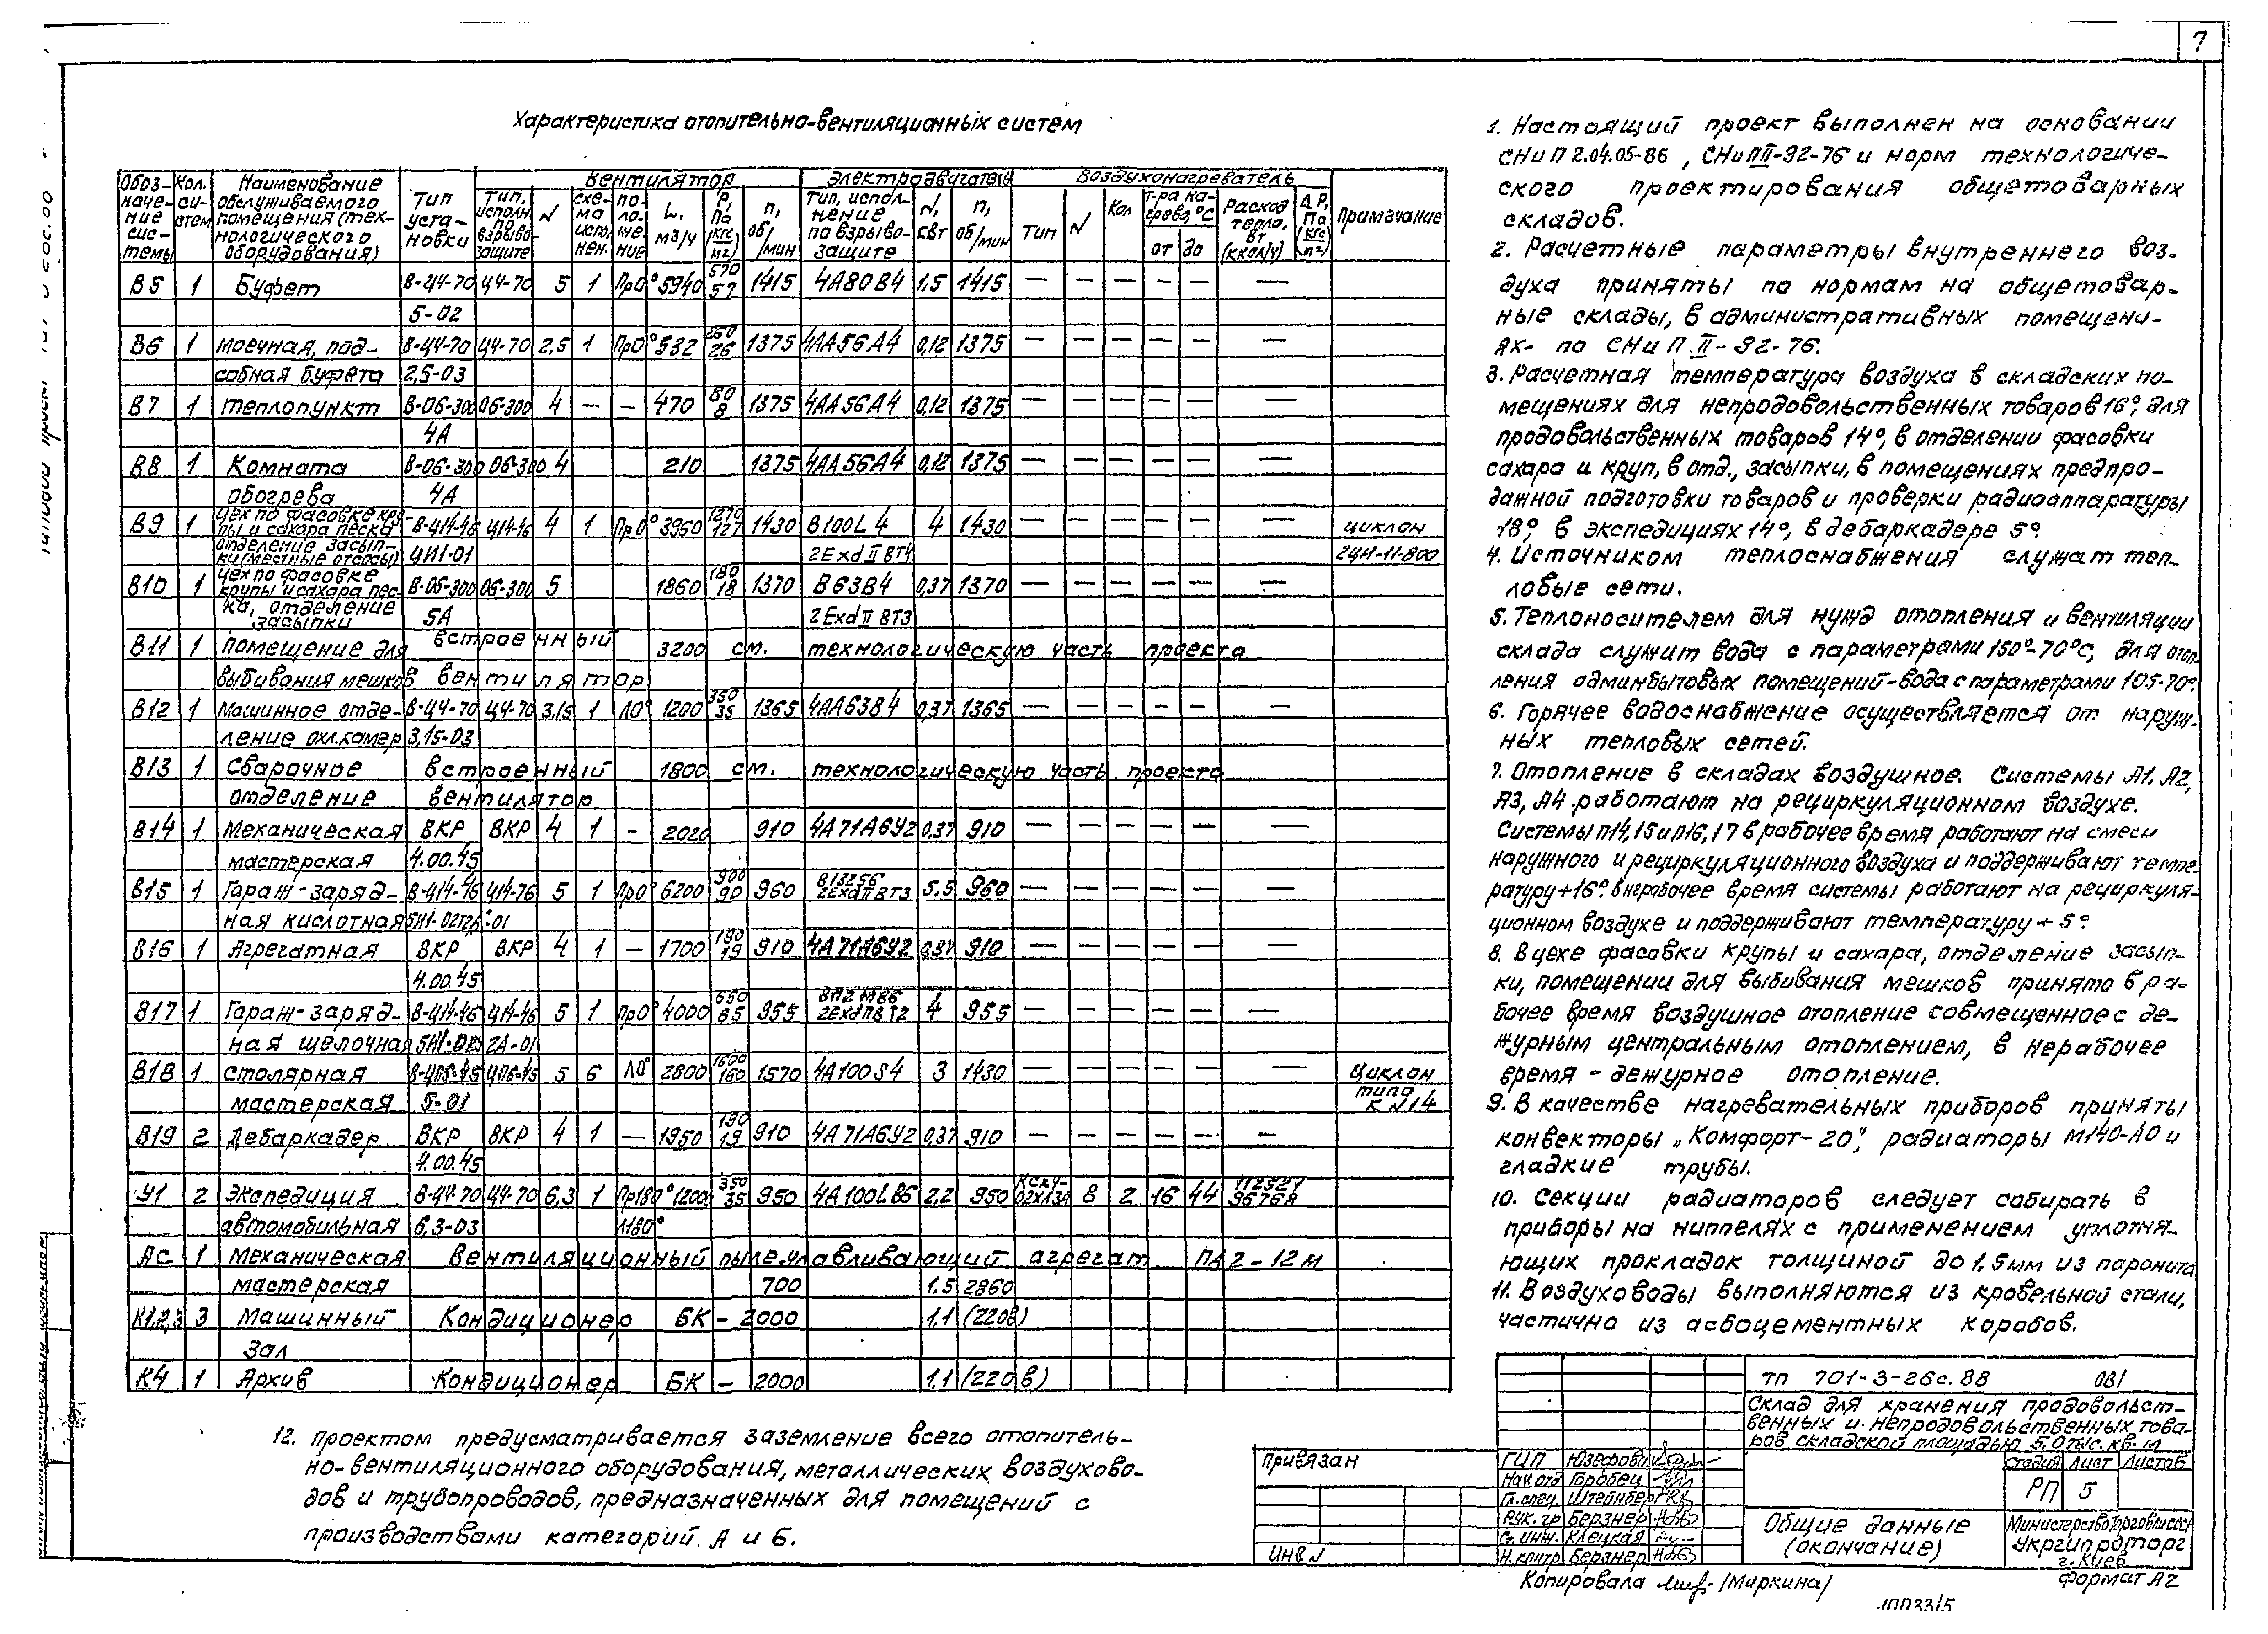 7
Характеристика отопительно-вентиляционных систем
Обоз-наче-ние сис-темы | Кол. си-стем | Наименование обслуживаемого помещения (тех-нологического оборудования) | Тип уста-новки | Вентилятор | Электродвигатель | Воздухонагреватель | Примечание
Тип, исполн. по взрыво-защите | N | схе-ма испо-нен. | по-ло-же-ние | L, м3/ч | P, Па (кгс/м2) | п, об/мин | Тип, испол-нение по взрыво-защите | N, квт | п, об/мин | Тип | N | Кол | Т-ра на-грева, °С от до | Расход тепла, вт (ккал/ч) | Δ Р, Па (кгс/м2)
В5 1 Буфет В-Ц4-70 Ц4-70 5 1 Пр0° 5940 570/57 1415 4А80В4 1,5 1415 — — — — — —
5-02
В6 1 Моечная, под- В-Ц4-70 Ц4-70 2,5 1 Пр0° 532 260/26 1375 4АА56А4 0,12 1375 — — — — — —
собная буфета 2,5-03
В7 1 Теплопункт В-06-300 06-300 4 — — 470 80/8 1375 4АА56А4 0,12 1375 — — — — — —
4А
В8 1 Комната В-06-300 06-300 4 210 1375 4АА56А4 0,12 1375 — — — — — —
обогрева 4А
В9 1 Цех по фасовке кру- В-Ц14-46 Ц14-46 4 1 Пр0° 3960 1270/127 1430 В100L4 4 1430 — — — — — — циклон
пы и сахара песка
отделение засып-
ки (местные отсосы) 4И1-01 2ЕхdⅡВТ4 2ЦН-11-800
В10 1 Цех по фасовке В-06-300 06-300 5 1860 180/18 1370 В63В4 0,37 1370 — — — — — —
крупы и сахара пес-
ка, отделение 5А 2ЕхdⅡВТ3
засыпки
В11 1 помещение для встроенный 3200 см. технологическую часть проекта
выбивания мешков вентилятор
В12 1 Машинное отде- В-Ц4-70 Ц4-70 3,15 1 Л0° 1200 350/35 1365 4АА63В4 0,37 1365 — — — — — —
ление охл.камер 3,15-03
В13 1 Сварочное встроенный 1800 см. технологическую часть проекта
отделение вентилятор
В14 1 Механическая ВКР ВКР 4 1 - 2020 910 4А71А6У2 0,37 910 — — — — — —
мастерская 4.00.45
В15 1 Гараж-заряд- В-Ц14-46 Ц14-76 5 1 Пр0° 6200 900/90 960 В132S6 2ЕхdⅡВТ3 5.5 960 — — — — — —
ная кислотная
В16 1 Агрегатная ВКР ВКР 4 1 — 1700 190/19 910 4А71А6У2 0,37 910 — — — — — —
4.00.45
В17 1 Гараж-заряд- В-Ц14-46 Ц14-46 5 1 Пр0° 4000 650/65 955 4 955 — — — — — —
ная щелочная
В18 1 Столярная В-ЦП6-45 ЦП6-45 5 6 Л0° 2800 1600/160 1570 4А100S4 3 1430 — — — — — — Циклон
мастерская 5-01 типа К N14
В19 2 Дебаркадер ВКР ВКР 4 1 — 1950 190/19 910 4А71А6У2 0,37 910 — — — — — —
4.00.45
У1 2 Экспедиция В-Ц4-70 Ц4-70 6,3 1 Пр180° 1200 350/35 950 4А100LВ6 2,2 950 8 2 16 44 112521/96768
автомобильная 6,3-03 Л180°
АС 1 Механическая Вентиляционный пылеулавливающий агрегат ПА2-12М
мастерская 700 1.5 2860
К1,2,3 3 Машинный Кондиционер БК-2000 1.1 (220в)
зал
К4 1 Архив Кондиционер БК-2000 1.1 (220в)
12. Проектом предусматривается заземление всего отопитель-
но-вентиляционного оборудования, металлических воздухово-
дов и трубопроводов, предназначенных для помещений с
производствами категорий А и Б.
1. Настоящий проект выполнен на основании
СНиП 2.04.05-86, СНиПⅡ-92-76 и норм технологиче-
ского проектирования общетоварных
складов.
2. Расчетные параметры внутреннего воз-
духа приняты по нормам на общетовар-
ные склады, в административных помещени-
ях- по СНиП Ⅱ-92-76.
3. Расчетная температура воздуха в складских по-
мещениях для непродовольственных товаров 16°, для
продовольственных товаров 14°, в отделении фасовки
сахара и круп, в отд., засыпки, в помещениях предпро-
дажной подготовки товаров и проверки радиоаппаратуры
18°, в экспедициях 14°, в дебаркадере 5°.
4. Источником теплоснабжения служат теп-
ловые сети.
5. Теплоносителем для нужд отопления и вентиляции
склада служит вода с параметрами 150°-70°С, для отоп-
ления админбытовых помещений-вода с параметрами 105-70°.
6. Горячее водоснабжение осуществляется от наруж-
ных тепловых сетей.
7. Отопление в складах воздушное. Системы А1, А2,
А3, А4 работают на рециркуляционном воздухе.
Системы п14,15 и п16,17 в рабочее время работают на смеси
наружного и рециркуляционного воздуха и поддерживают темпе-
ратуру+16°. в нерабочее время системы работают на рециркуля-
ционном воздухе и поддерживают температуру + 5°.
8. В цехе фасовки крупы и сахара, отделение засып-
ки, помещении для выбивания мешков принято в ра-
бочее время воздушное отопление совмещенное с де-
журным центральным отоплением, в нерабочее
время - дежурное отопление.
9. В качестве нагревательных приборов приняты
конвекторы „Комфорт-20", радиаторы М140-АО и
гладкие трубы.
10. Секции радиаторов следует собирать в
приборы на ниппелях с применением уплотня-
ющих прокладок толщиной до 1,5мм из паронита
11. Воздуховоды выполняются из кровельной стали,
частично из асбоцементных коробов.
тп 701-3-26с.88 ОВ1
Склад для хранения продовольст-
венных и непродовольственных това-
ров складской площадью 5.0 тыс. кв. м
стадия лист листов
РП 5
Общие данные
(окончание)
Министерство торговли СССР
Укргипроторг
г. Киев
Привязан
Инв N
ГИП Юзефович
Нач отд Горобец
Гл.спец Штейнберг
Рук. гр Берзнер
Ст. инж. Клецкая
Н. контр Берзнер
Копировала /Миркина/
формат А2